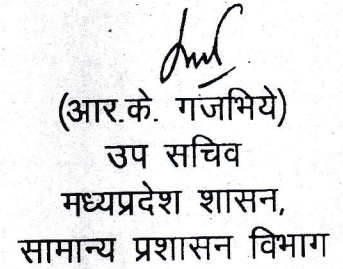 (आर.के. गजभिये)
उप सचिव
मध्यप्रदेश शासन,
सामान्य प्रशासन विभाग